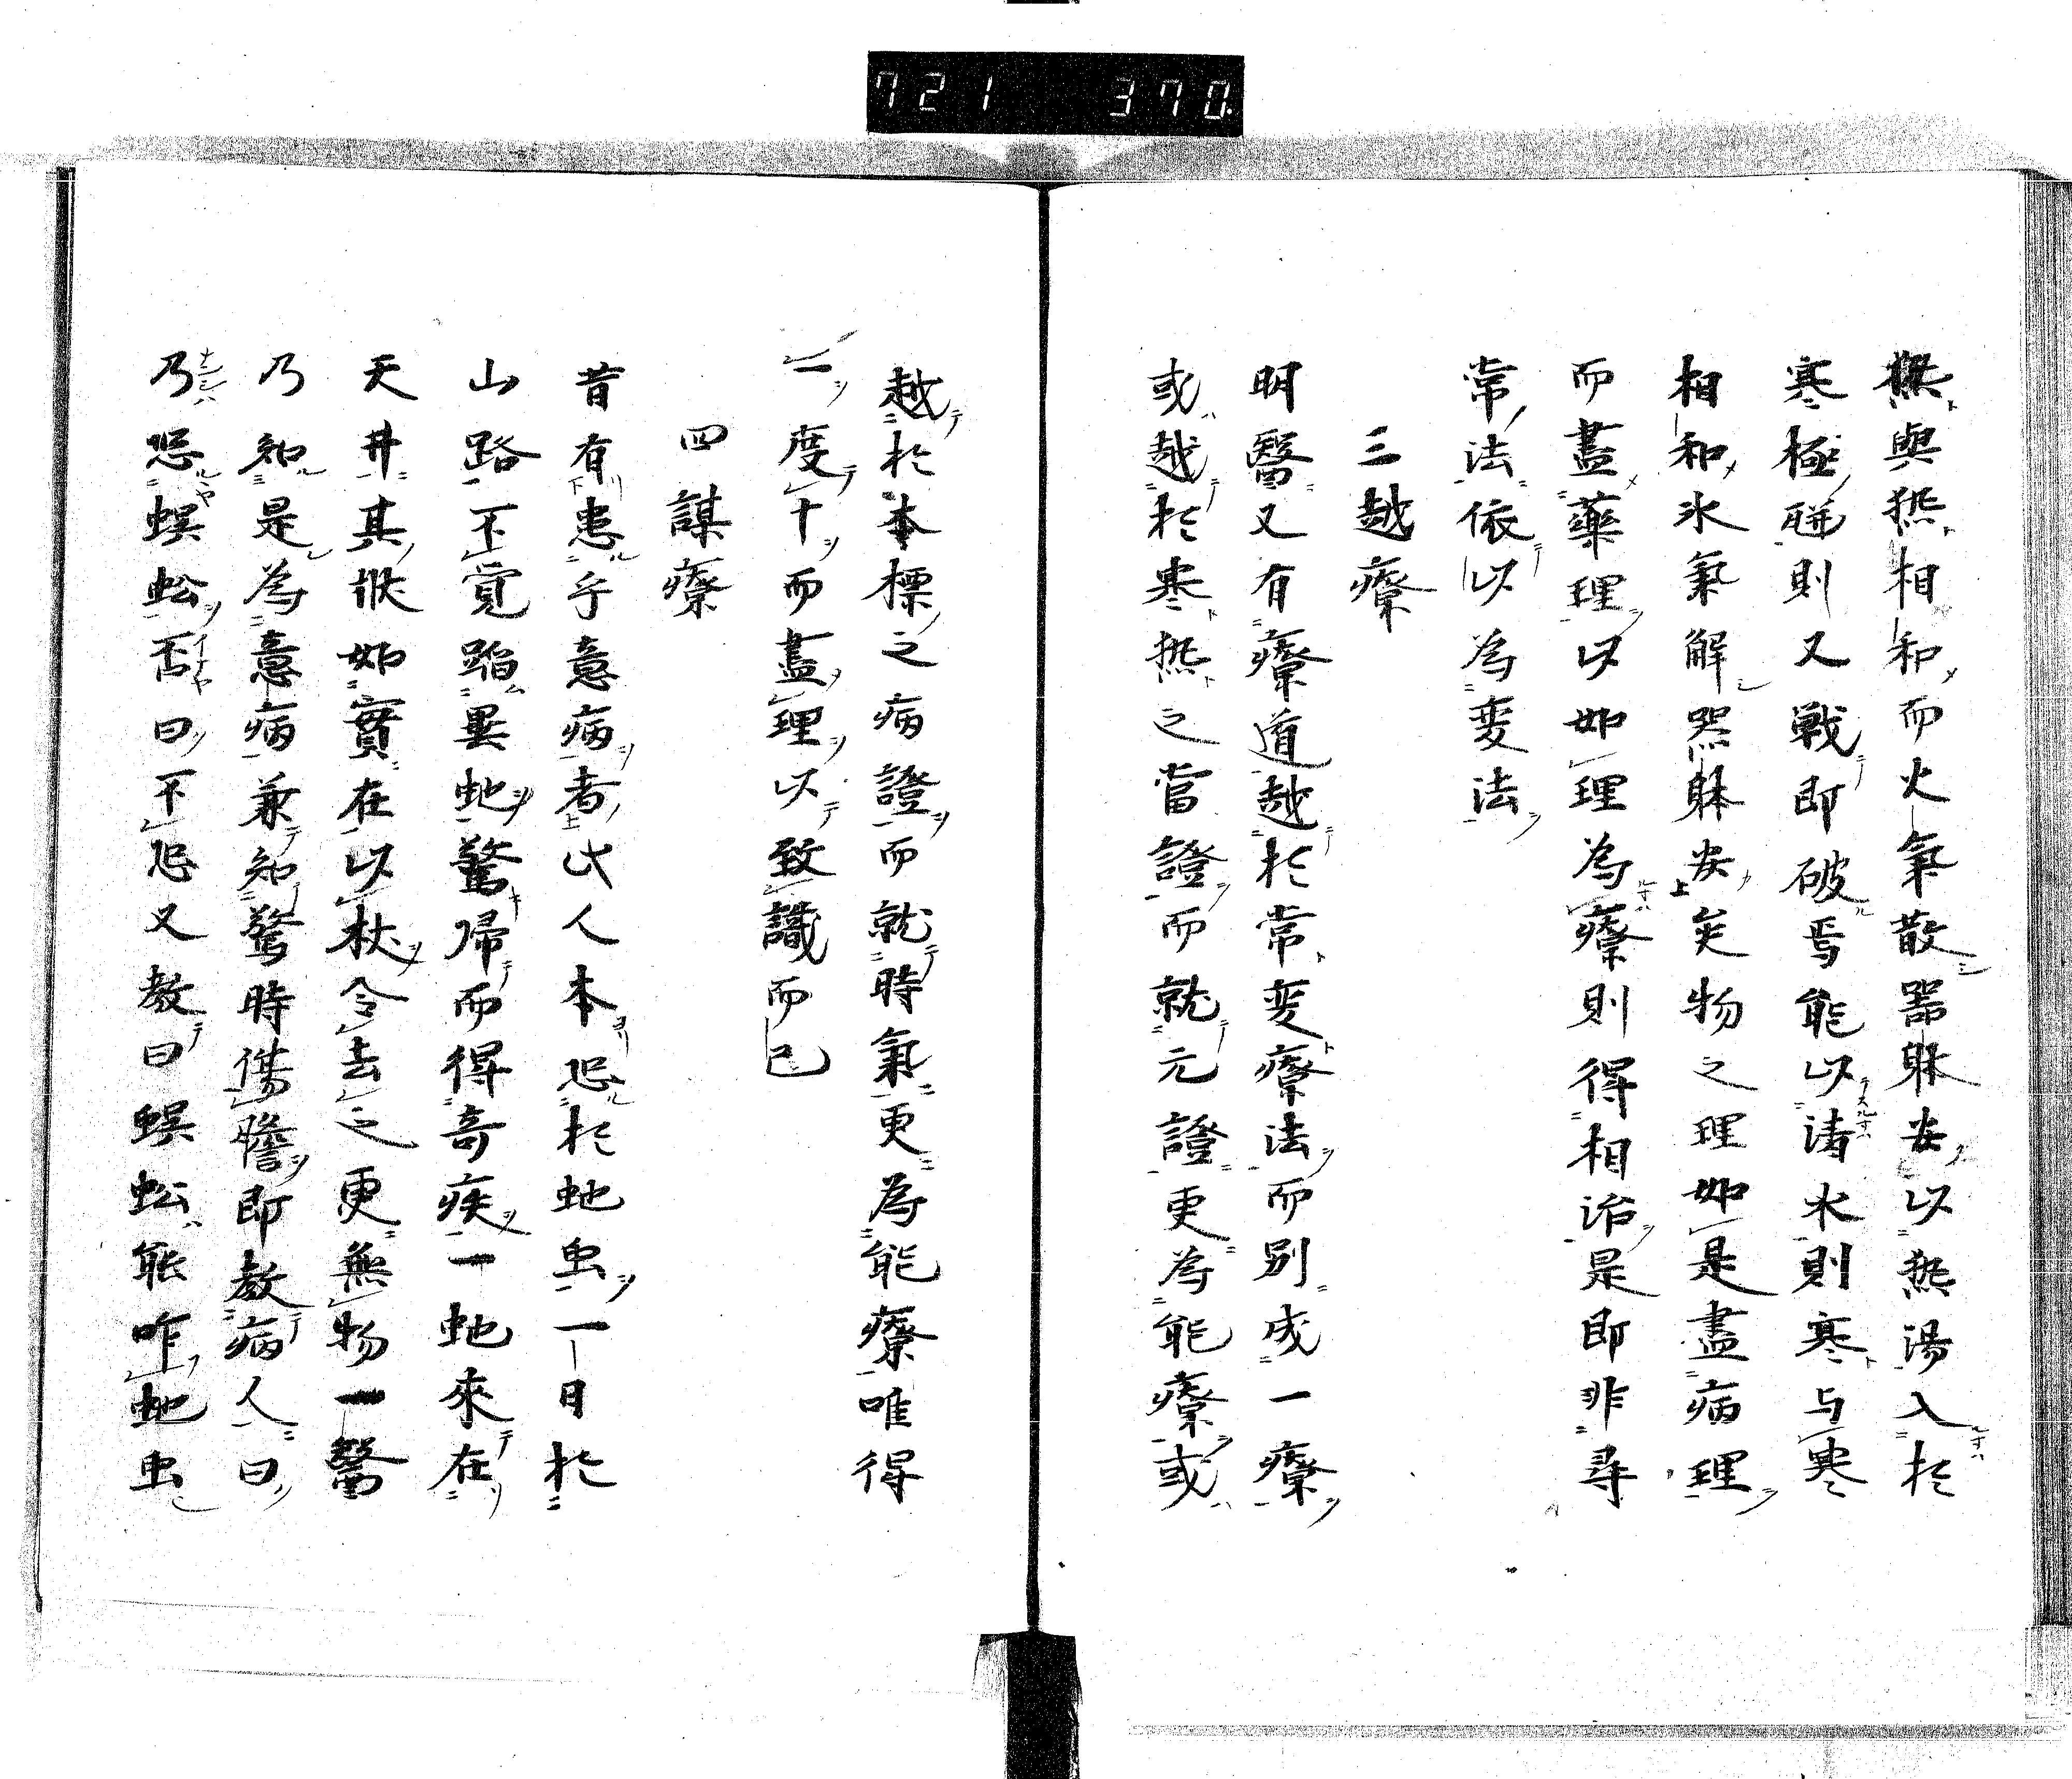 721 370
熱與熱相和而火氣散器躰安以熱湯入於
寒極騈則又戦即破焉能以清水則寒与寒
相和氷氣解器躰安矣物之理如是盡病理
而盡藥理以如理為療則得相治是即非尋
常法依以為変法
三越療
明醫又有療道越於常変療法而別成一療
或越於寒熱之當證而就元證更為能療或
越於本標之病證而就時氣更為能療唯得
一度十而盡理以致識而已
四謀療
昔有患乎意病者此人本忌於虵虫一日於
山路不覚蹈異虵驚帰而得奇疾一虵來在
天井其狀如實在以杖令去之更無物一醫
乃知是為意病兼知驚時傷膽即教病人曰
乃忌蜈蚣否曰不忌又教曰蜈蚣能咋虵虫